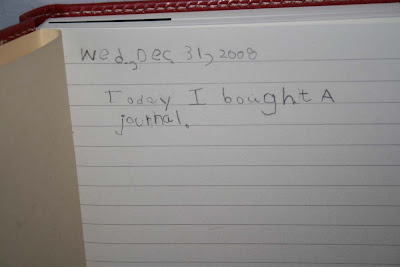 Wed, Dec 31, 2008
Today I bought A
journal.